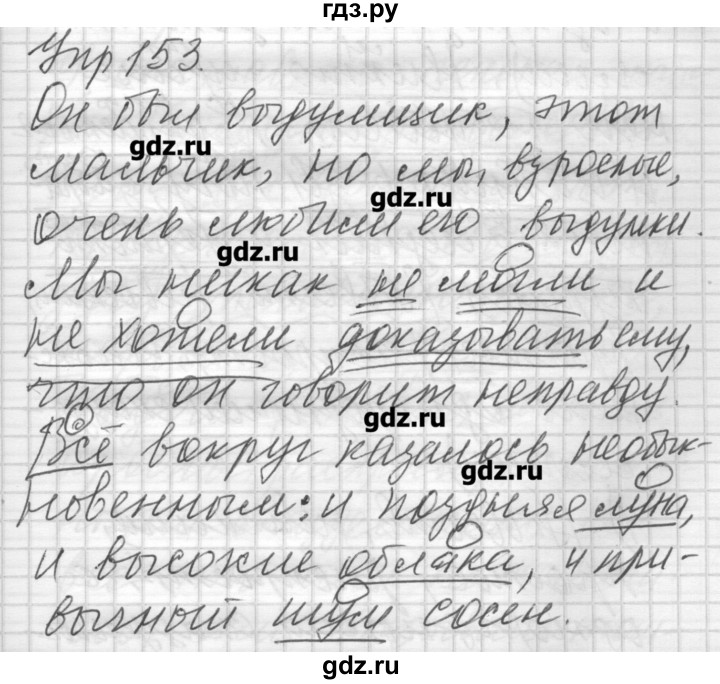 гдз.ру
Упр 153.
Он был выдумщик, этот
gdz.ru
мальчик, но мы, взрослые,
gdz.ru
очень любили его выдумки.
gdz.ru
Мы никак не могли и
не хотели доказывать ему,
что он говорит неправду.
gdz.ru
Всё вокруг казалось необык-
gdz.ru
новенным: и поздняя луна,
и высокие облака, и при-
вычный шум сосен.
gdz.ru